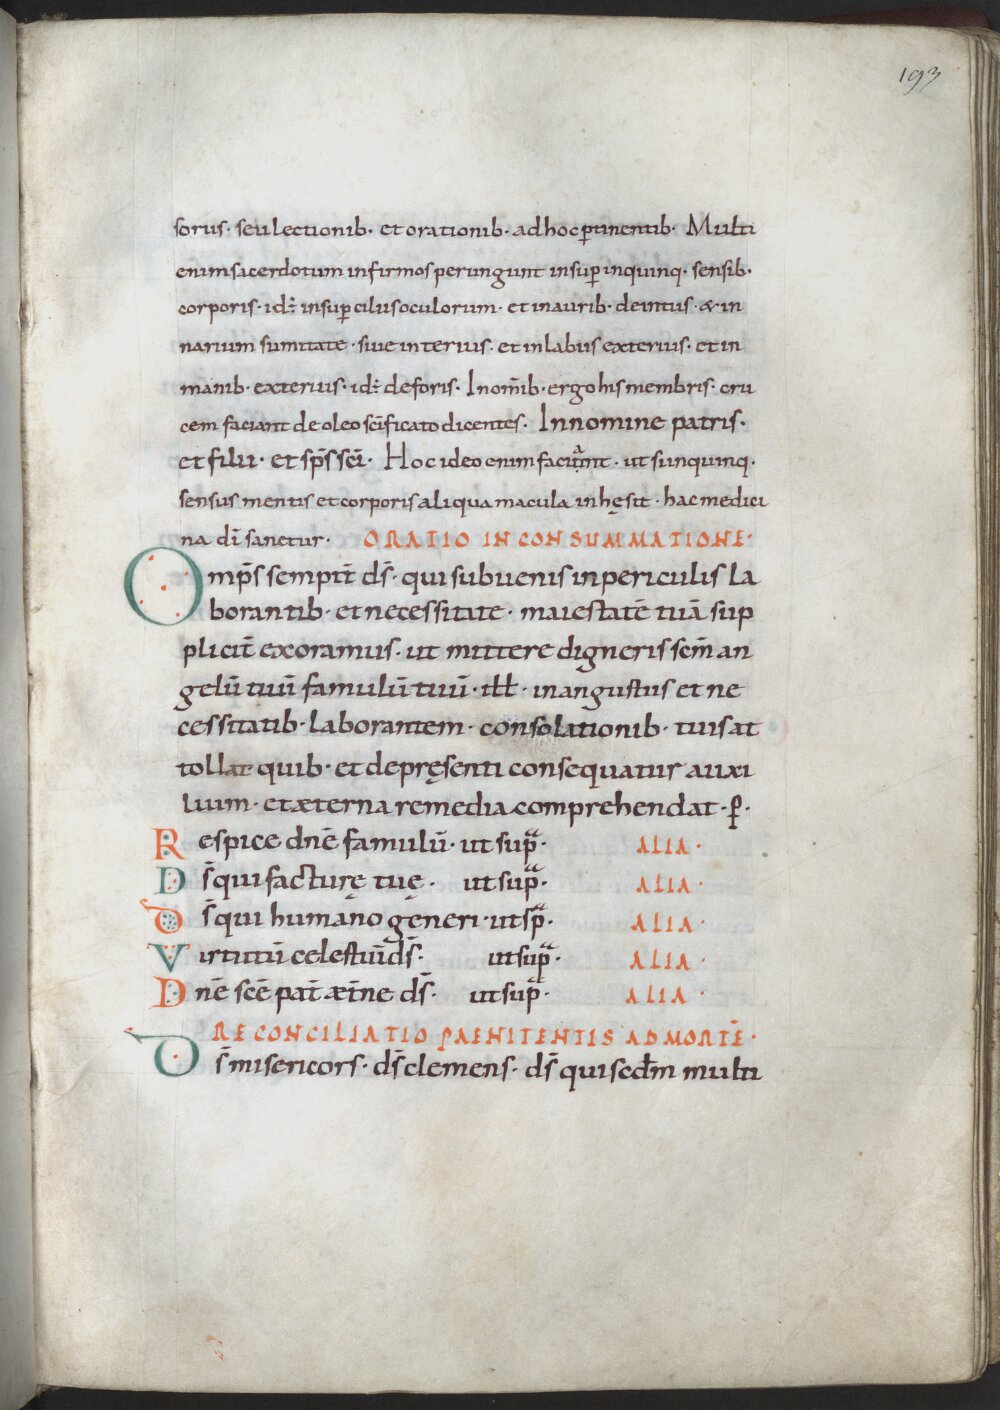 193
sorus· seu lectionib· et orationib· ad hoc ꝑtinentib· Multi
enim sacerdotum infirmos perungunt insuꝑ in quinq· sensib·
corporis· id: insuꝑ cilus oculorum· et in aurib· deintus· & in
narium sumitate· siue interius· et in labiis exterius· et in
manib· exterius· id: deforis· In om̄ib· ergo his membris· cru
cem faciant de oleo scīficato dicentes· In nomine patris·
et filii· et sp̄s sc̄i· Hoc ideo enim faciunt· ut si in quinq·
sensus mentis et corporis aliqua macula inhęsit· hac medici
na dī sanetur· ORATIO IN CONSUMMATIONE·
Omp̄s sempit̄ ds̄· qui subuenis in periculis la
borantib· et necessitate· maiestatē tuā sup
pliciт̄ exoramus· ut mittere digneris scm̄ an
gelū tuū famulū tuū· ill· in angustiis et ne
cessitatib· laborantem· consolationib· tuis at
tollat quib· et de pręsenti consequatur auxi
lium· et æterna remedia comprehendat· ꝑ·
Respice dn̄e famulū· ut supᷓ· ALIA·
Ds̄ qui facturę tuę· ut supᷓ· ALIA·
Ds̄ qui humano generi· ut spᷓ· ALIA·
Virtutū celestiū ds̄· ut supᷓ· ALIA·
Dn̄e scē pat̄ æt̄ne ds̄· ut supᷓ· ALIA·
RECONCILIATIO PAENITENTIS AD MORTĒ·
Ds̄ misericors· ds̄ clemens· ds̄ qui secdm̄ multi